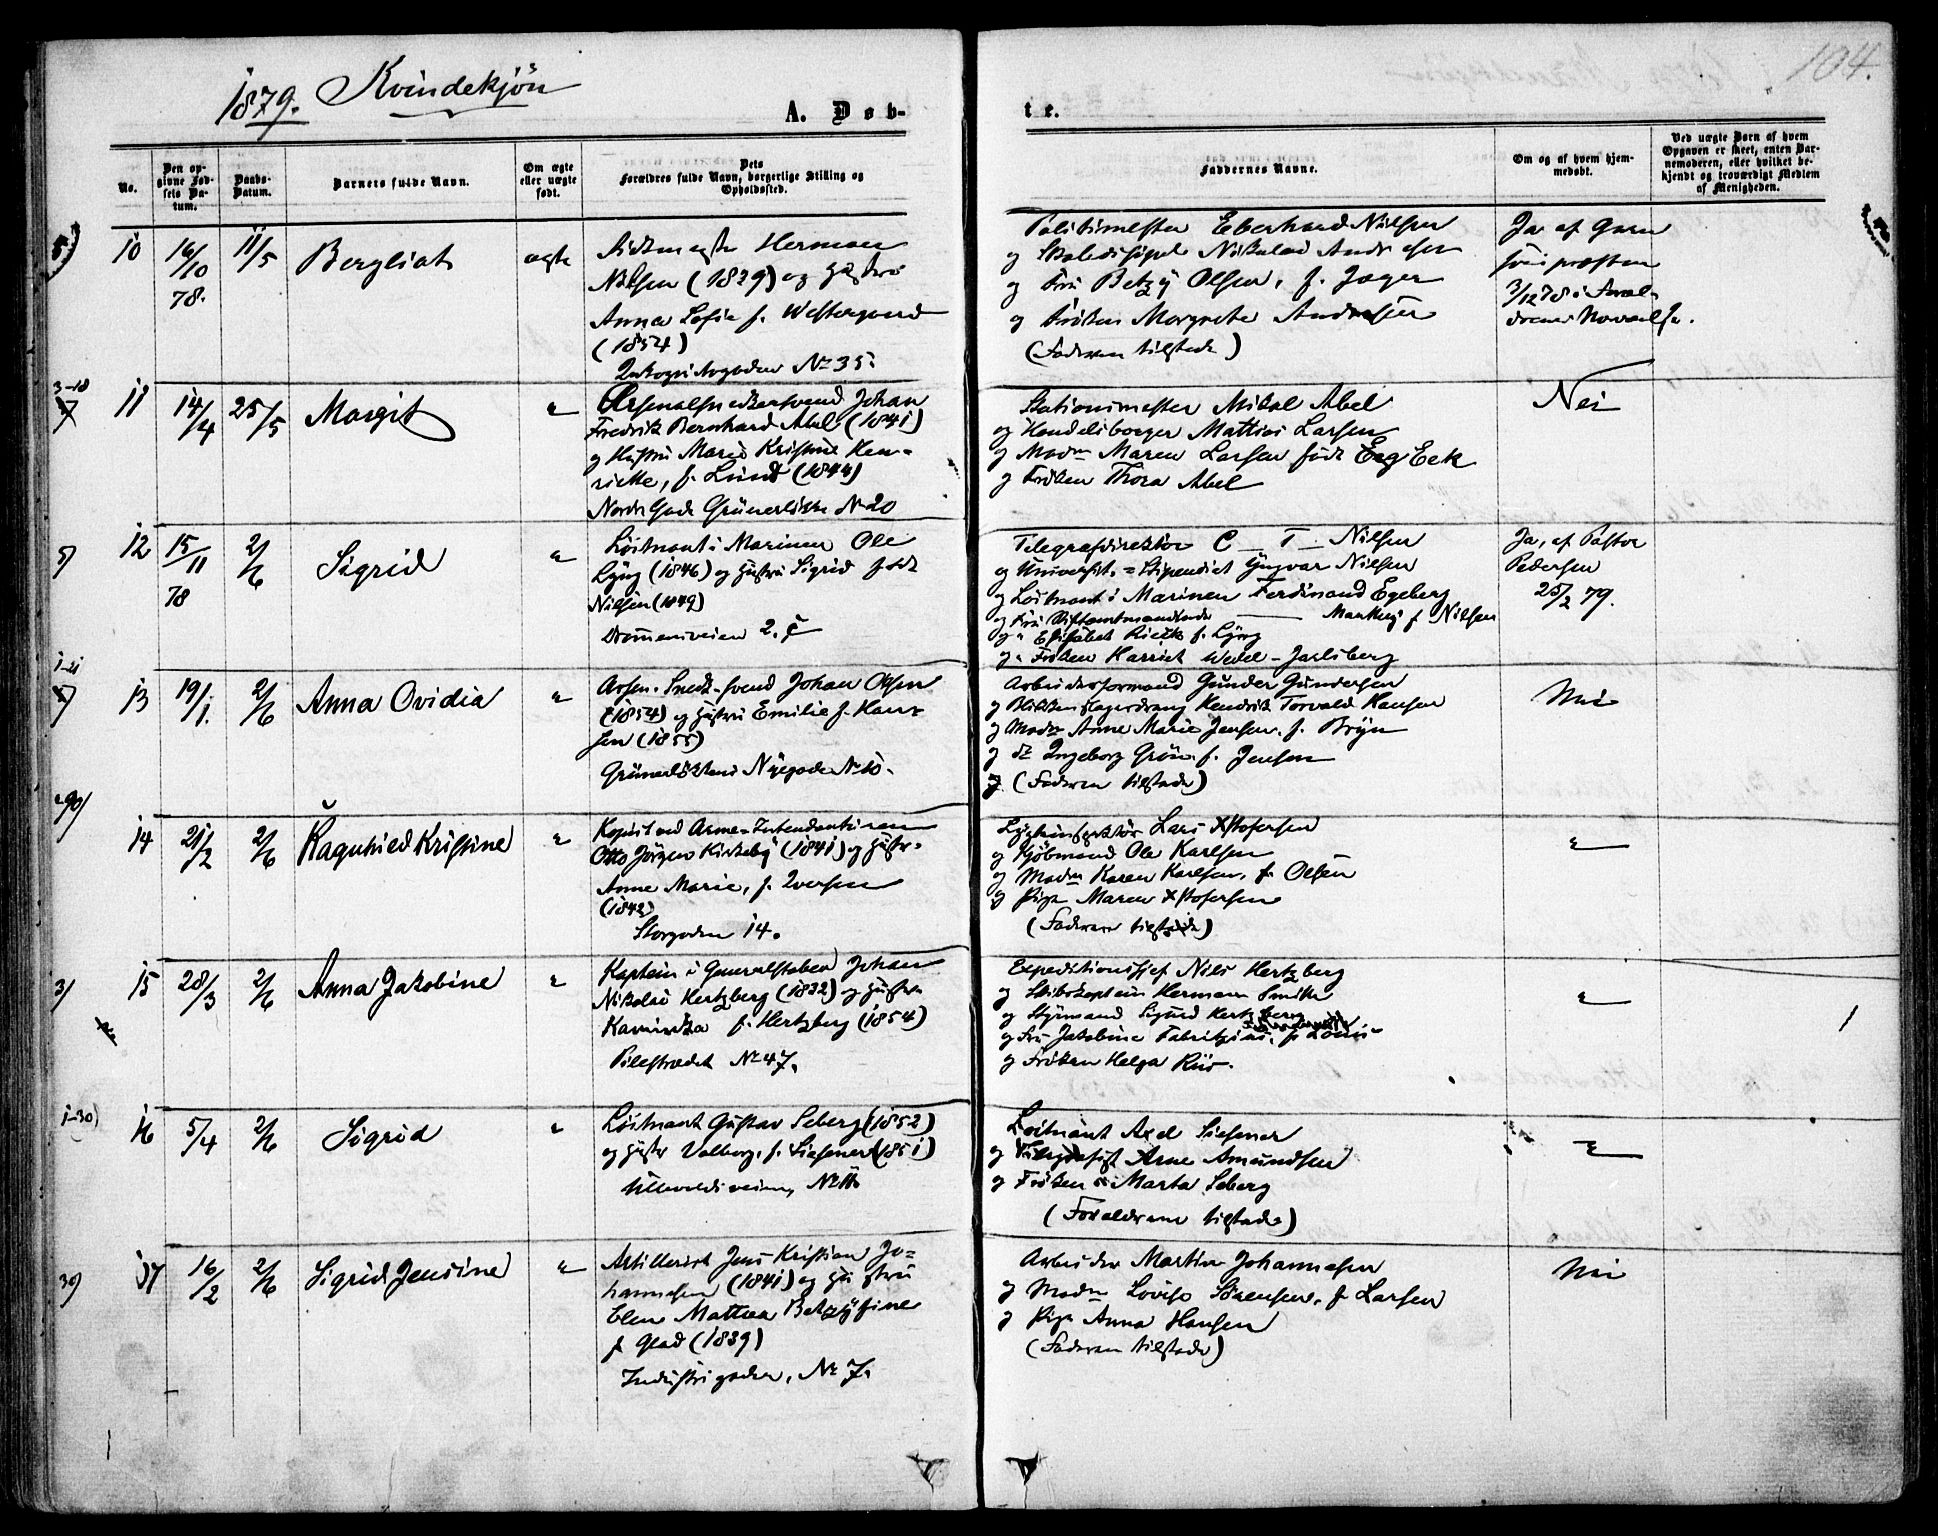 1879. Kvindekjön
104.
A. Døb-
te.
No.
Den opgivne Fødsels Datum.
Daabs-Datum.
Barnets fulde Navn.
Om ægte eller uægte født.
Dets Forældres fulde Navn, borgerlige Stilling og Opholdssted.
Faddernes Navne.
Om og af hvem hjemmedøbt.
Ved uægte Barn af hvem Opgaven er skeet, enten Barnemoderen, eller hvilket bekjendt og troværdigt Medlem af Menigheden.
5)
10
16/10 78.
11/5
Bergliot
ægte
Herman
Nilsen (1829) og Hustru
Anna Sofie f. Westergaard
(1854)
No 35.
Politimester Eberhard Nielsen
og Skoledisipel Nikolai Andresen
og Fru Betzy Olsen, f. Jager
og Frøken Margrete Andresen
(Faderen tilstede)
Ja af Garnisonspræsten
3/12 78 i
3-18
7
11
14/4
25/5
Margit
"
Arsenalsnedkersvend Johan
Fredrik Bernhard Abel (1841)
og Hustru Marie Kristine Hen-
riette, f. Lund (1844)
Nordre Gade Grünerløkke No 20
Stationsmester Mikal Abel
og Handelsborger Mattias Larsen
og Madm Maren Larsen født Eeg Eek
og Frøken Thora Abel
Nei
5)
12
15/11 78
2/6
Sigrid
"
Løitnant i Marinen Ole
Lyng (1846) og Hustru Sigrid født
Nilsen (1849)
Drammensveien 2. c
Telegrafdirektør C T Nielsen
og Universit.=Stipendiat Yngvar Nielsen
og Løitnant i Marinen Ferdinand Egeberg
og Fru Stiftamtmandinde f Nilsen
og " Elisabet f. Lyng
og " Frøken Harriet Wedel-Jarlsberg
Ja, af Pastor
Pedersen
25/2 79.
1-21
13
19/1.
2/6
Anna Ovidia
"
Arsen. Snedk.-svend Johan Olsen
(1854) og Hustru Emilie f. Han-
sen (1855)
Grünerløkkens Nyegade No 10.
Arbeidsformand Gunder Gundersen
og Blikkenslagerdreng Hendrik Torvald Hansen
og Madm Anne Marie Jensen, f. Bryn
og do Ingeborg Grøn f. Jensen
(Faderen tilstede)
Nei
14
21/2
2/6
Ragnhild Kristine
"
Kopist ved Arme-Intendanturen
Otto Jørgen Kirkeby (1841) og Hustru
Anne Marie, f. Iversen
(1842)
Storgaden 14.
Lars Xstofersen
og Kjøbmand Ole Karlsen
og Madm Karen Karlsen, f. Olsen
og Pige Maren Xstofersen
(Faderen tilstede)
"
3)
15
28/3
2/6
Anna Jakobine
"
Kaptein i Generalstaben Johan
Nikolai Hertzberg (1832) og Hustru
f. Hertzberg (1854)
Pilestrædet No 47.
Expeditionssjef Nils Hertzberg
og Skibskaptein Herman Smith
og Styrmand Sigurd Hertzberg
og Fru Jakobine Fabritzius, f.
og Frøken Helga Riis.
"
1-30)
16
5/4
2/6
Sigrid
"
Løitnant Gustav Seberg (1852)
og Hustr Valborg, f. Siefener (1851)
Ullevoldsveien,
Løitnant Axel Siefener
og Arne Amundsen
og Frøken Marta Seberg
(Forældrene tilstede)
"
39)
17
16/2
2/6
Sigrid Jensine
"
Artillerist Jens Kristian Jo-
hannesen (1841) og Hustru
Elen Mathea Betzyfine
f Glad (1839)
Industrigaden, No 7.
Arbeider Martin Johannesen
og Madm Lovise Sørensen, f Larsen
og Pige Anna Hansen
(Faderen tilstede)
Nei